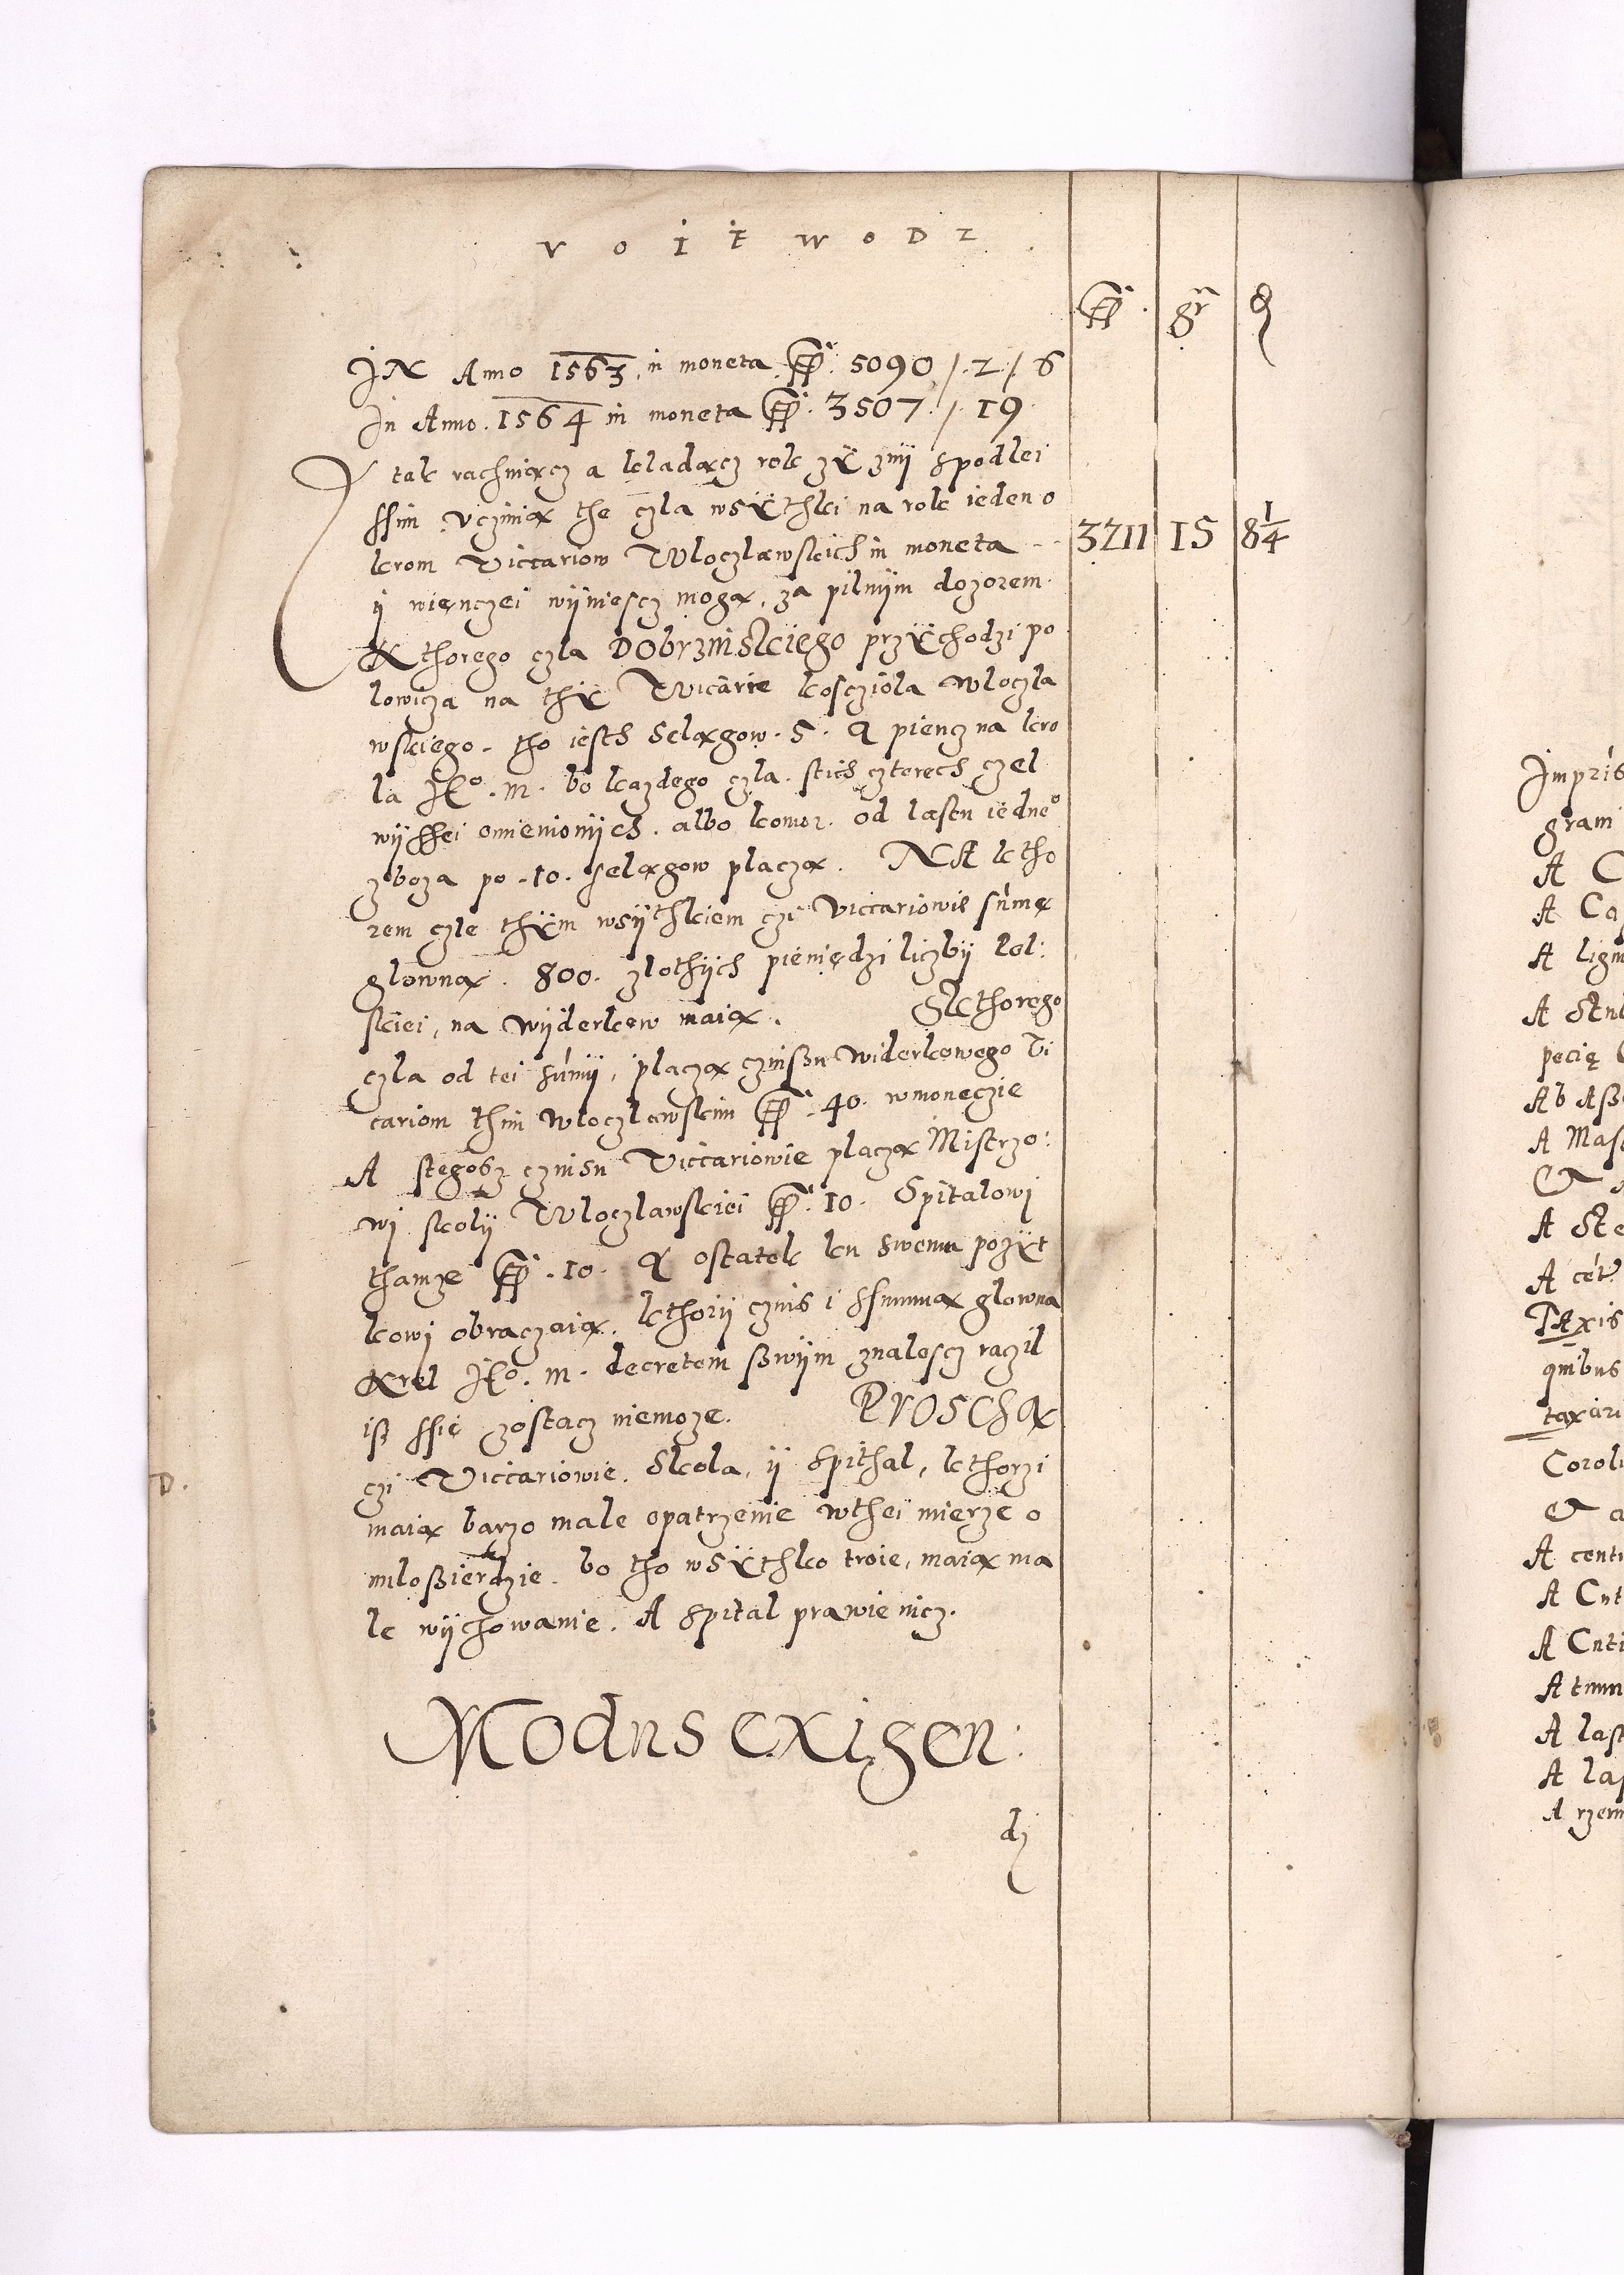 V O I E W O D Z
fl. gr. d.
IN Anno 1563. in moneta fl. 5090 /. 2 /. 6
In Anno. 1564 in moneta fl. 3507. /. 19.
I tak rachuiącz a kladącz rok zÿ znij spodlei
ssim vczinią the czla wsÿthki na rok ieden o
krom Viccariow Wloczlawskich in moneta -- 3211 15 8 1/4
ij wienczei wijniescz mogą, za pilnijm dozorem.
Kthorego czla DObrzinskiego przÿchodzi po
lowicza na thÿ Vicarie kosciola Wloczla
wskiego. tho iesth Selągow. 5. A piencz na kro
la Jeº. M. bo kazdego czla. stich czterech czel
wijssei omienionijch. albo komor. od lastu iedneº
zboza po. 10. selągow placzą. NA ktho
rem czle thÿm wsijthkiem czi Viccariowie sumę
glowną. 800. zlothijch pieniędzi liczbij Pol:
skiei, na wijderkew maią. SKthorego
czla od tei sumij, placzą czinssu widerkowego Vi
cariom thim Wloczlawskim fl. 40. wmoneczie
A stegosz czinsu Viccariowie placzą Mistrzo:
wi skolij Wloczlawskiei fl. 10. Spitalowi
thamze fl. 10. A ostatek ku swemu pozÿt
kowi obraczaią. kthorij czins i ssummą glowna
Krol Jeº. M. decretem sswijm znalescz raczil
iss ssie zostacz niemoze. PrOSChą
czi Viccariowie. Skola, ij spithal, kthorzi
D.
maią barzo male opatrzenie wthei mierze o
milossierdzie. bo tho wsÿthko troie, maią ma
le wijchowanie. A spital prawie nicz.
Modus exigen:
di
Impris
gram
A C
A Ca
A lign
A Stu
pecię
Ab Ass
A Mas
A Ste
A cet
TAxis
quibus
taxari
Coroli
Et a
A cent
A Cnt
A Cnti
A tunn
A last
A las
A rzem